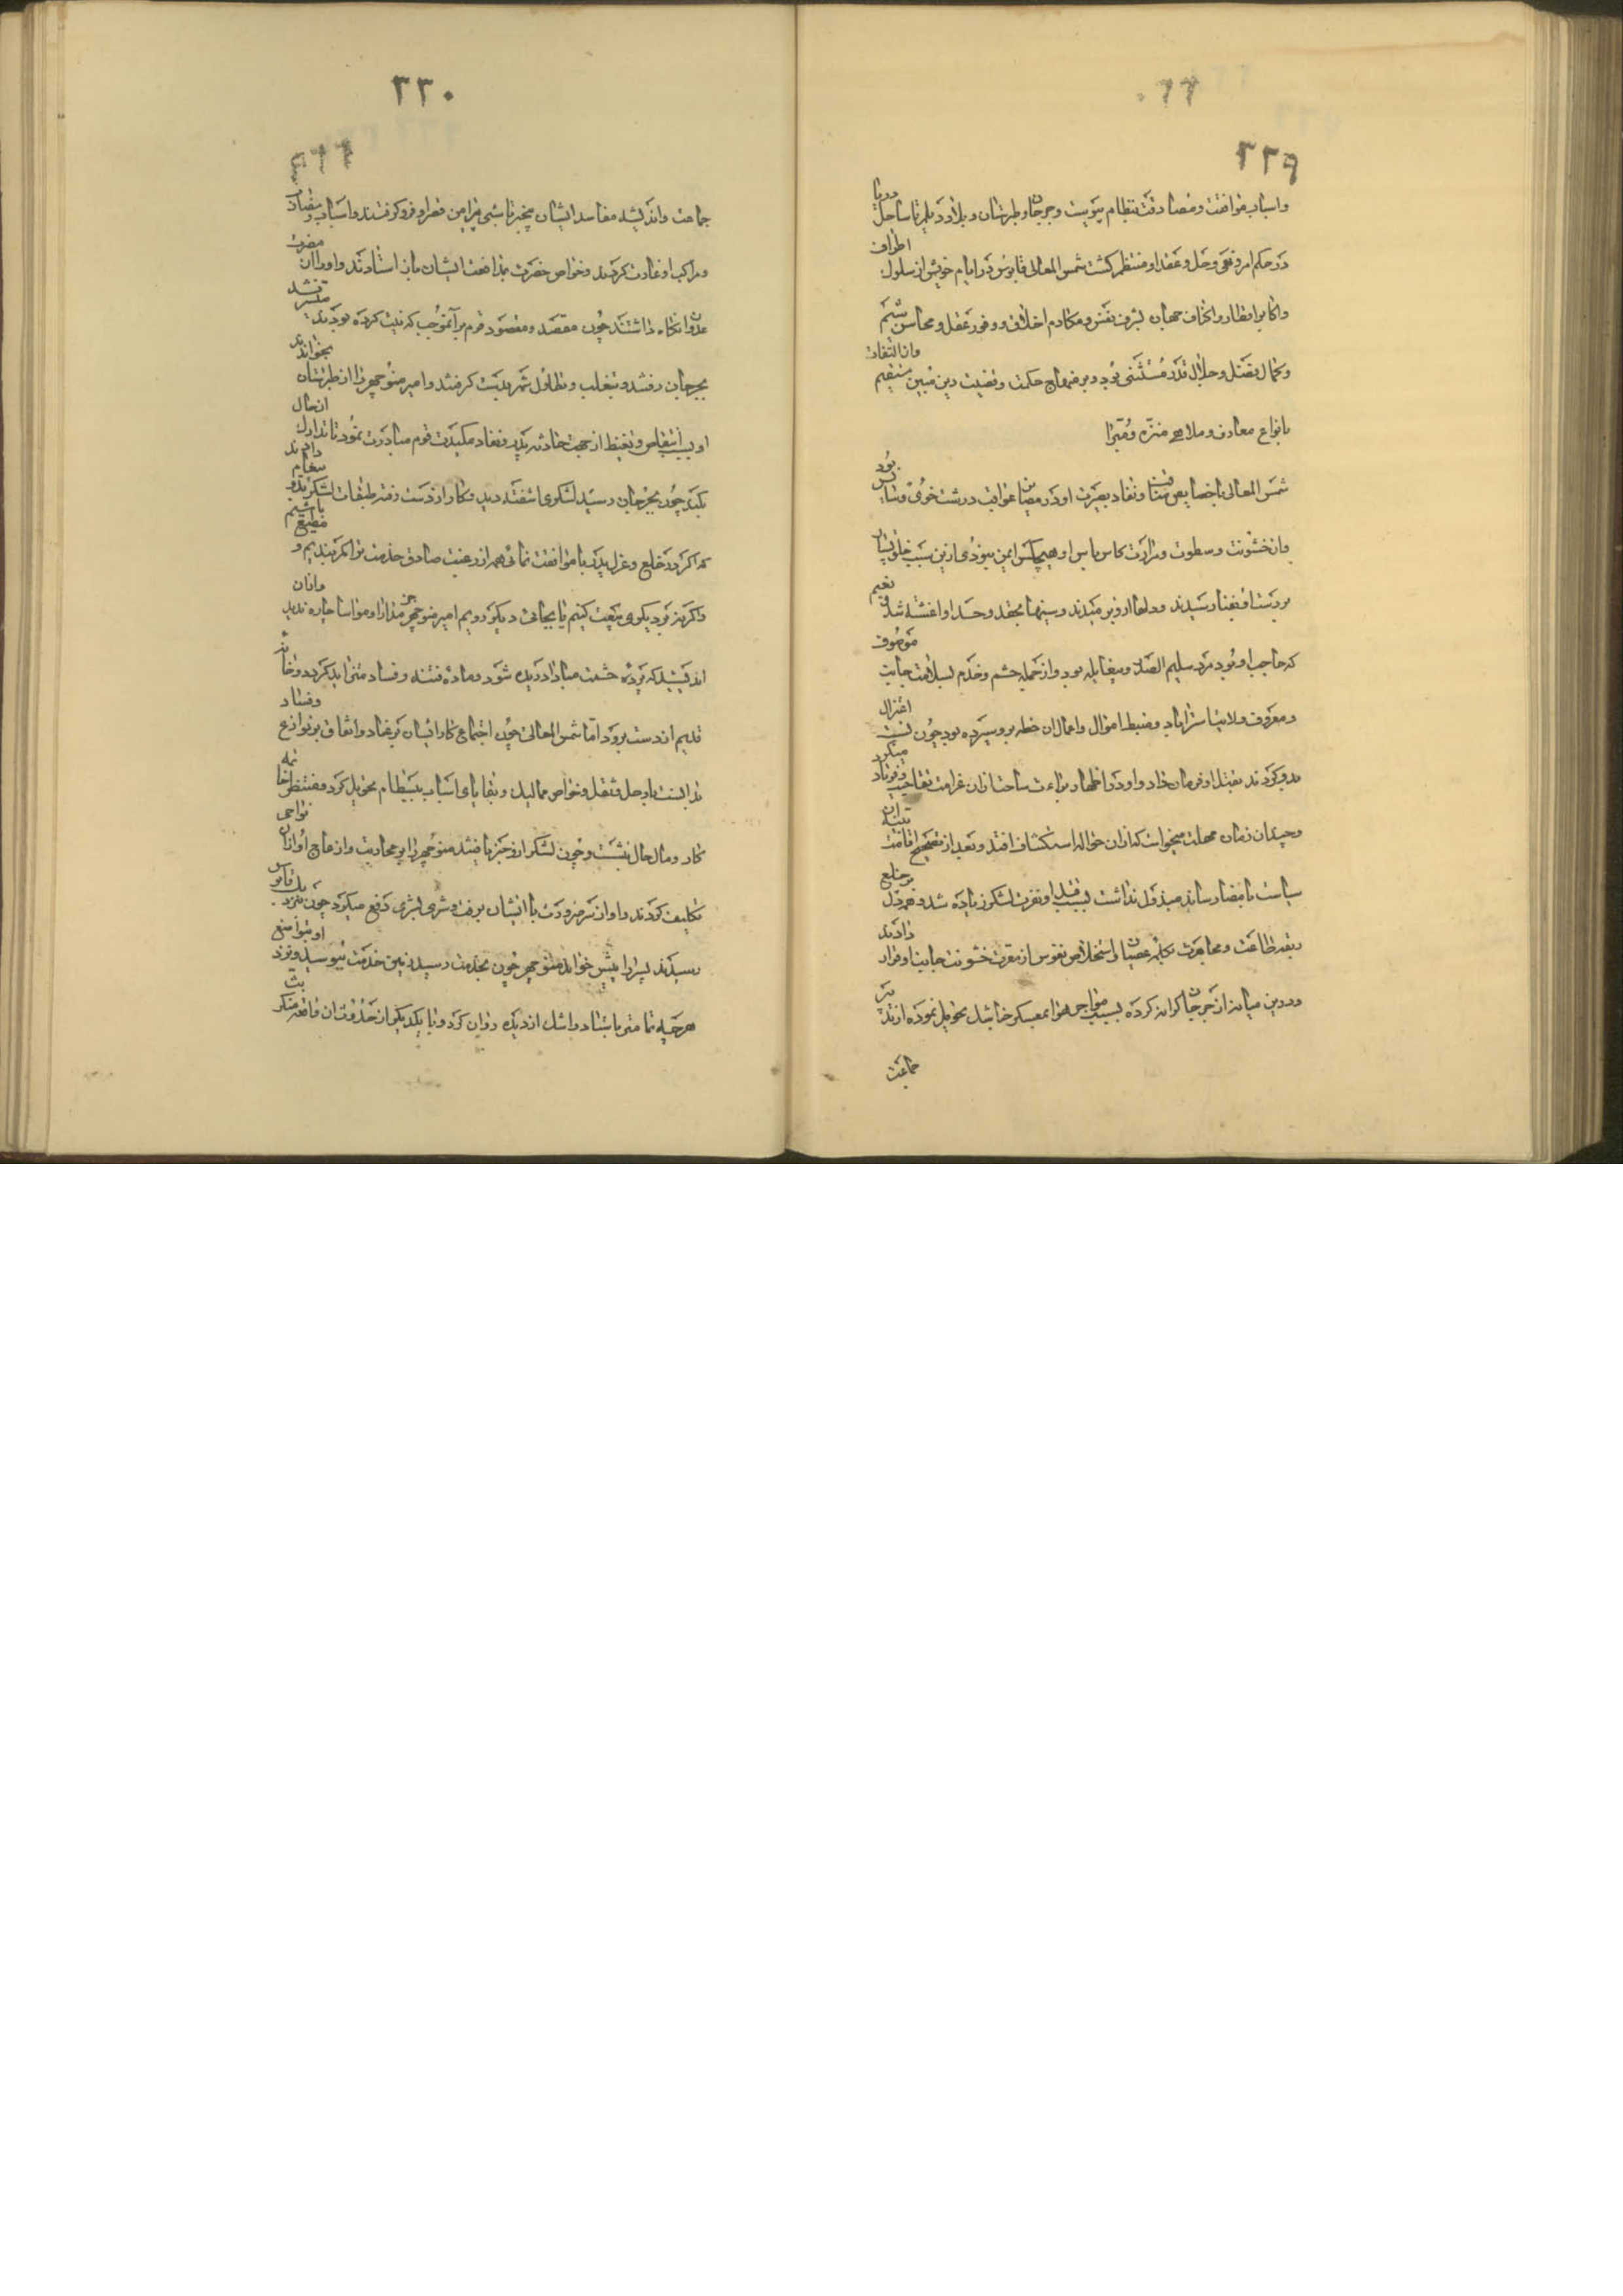 ٢٢٩
واسباب موافقت ومصادقت بنظام پیوست وجرجان وطبرستان وبلاد دیلم تا ساحل دریا
در حکم امر ونهی وحل وعقد او منتظم کشت شمس المعالی قابوس در ایام خویش از سلوک اطراف
واکابر اقطار واکناف جهان بشرف نفس ومکارم اخلاق ووفور عقل ومحاسن شیم
وکمال فضل وجلال قدر مستثنی بود وبر منهاج حکمت وقضیت دین مبین مستقیم وان التفات
بانواع معازف وملاهی منزه ومبرا
شمس المعالی با خصایص مناقب ونفاد بصیرت او در مصا عواقب درشت خوی وسا بود
وان خشونت وسطوت ومرارت کاس باس او هیچکس ایمن نبودی ازین سبب خلق بسیار
بر دست او بفنا رسیدند ودلها ازو برمیدند وسینها بحقد وحسد او اغشته شد نعیم
که حاجب او بود مرد سلیم الصدر وبیغایله بود واز جمله حشم وخدم بسلامت جانب موصوف
ومعروف ولایت استراباد وضبط اموال واعمال ان خطه برو سپرده بود چون نسبت اختزال
بدو کردند بقتل او فرمان داد واو در اظهار براءت ساحت ازان غرامت میکرد
وچندان زمان مهلت میخواست که ازان حواله استکشاف افتد وبعد از تصحیح اقامت
سیاست بامضا رساند مبذول نداشت بسبب قتل او نفرت لشکر زیاده شد وهمه دل بر خلع
ربقه طاعت ومجاهرت بکلمه عصیان واستخلاص نفوس از معرت خشونت جانب او قرار دادند
ودرین میانه از جرجان کرانه کرده بسبب هوا بمعسکر خاشک تحویل نموده از تدبیر
جماعت
٢٣٠
جماعت واندیشه مفاسد ایشان بیخبر تا شبی پیرامن قصر او فرو کرفتند واسباب
ومراکب او غارت کردند وخواص حضرت بمدافعت ایشان باز استادند واورا از ان مضرت
عدوان نکاه داشتند چون مقصد ومقصود قوم بر آنموجب که نیت کرده بودند میسر نشد
بجرجان رفتند وبتغلب وتطاول شهر بدست کرفتند وامیر منوچهر را از طبرستان بخواندند
او بسبب انتقاص وتغیظ از جهت حادثه پدر ونفاد مکیدت قوم مبادرت نمود تا تدارک انحال
بکند چون بجرجان رسید لشکری اشفته دید وکار از دست رفته طبقات لشکر بدو پیغام دادند
که اکر در خلع وعزل پدر با ما موافقت نمائی همه از رغبت صادق خدمت ترا کمر بندیم و
واکر نه بر دیکری بیعت کنیم یا بجانب دیکر رویم امیر منوچهر جز مدارا ومواسا چاره ندید
اندیشید که پرده حشمت مبادا دریده شود وماده فتنه وفساد متزاید کردد وخانه
قدیم از دست برود اما شمس المعالی چون اجتماع کار ایشان بر عناد واتفاق بر نوازع وفساد
بدانست با رحل وثقل وخواص ممالیک وبقایای اسباب ببسطام تحویل کرد ومنتظر
کار ومال حال بنشست وچون لشکر ازو خبر یافتند منوچهر را بر محاربت وازعاج او ازان نواحی
تکلیف کردند واو از سر ضرورت با ایشان برفت وشری بشری دفع میکرد چون نزدیک قابوس
رسیدند پسر را پیش خواند منوچهر چون بخدمت رسید زمین خدمت ببوسید
هر چه تمامتر بایستاد واشک از دیده روان کرد وبا یکدیکر از حدوث ان واقعه منکر